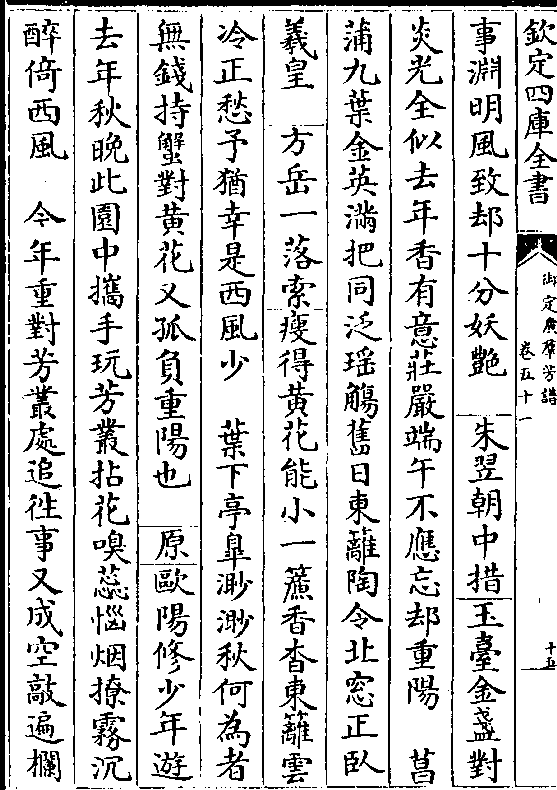 欽定四庫全書
御定廣羣芳譜
卷五十一
十五
事淵明風致却十分妖艷　朱翌朝中措玉臺金盞對
炎光全似去年香有意莊嚴端午不應忘却重陽　菖
蒲九葉金英滿把同泛瑶觴舊日東籬陶令北窓正臥
羲皇　方岳一落索瘦得黄花能小一簾香杳東籬雲
冷正愁予猶幸是西風少　葉下亭臯渺渺秋何為者
無錢持蟹對黄花又孤負重陽也　原歐陽修少年遊
去年秋晚此園中攜手玩芳叢拈花嗅蕊惱烟撩霧沉
醉倚西風　今年重對芳叢處追徃事又成空敲遍欄